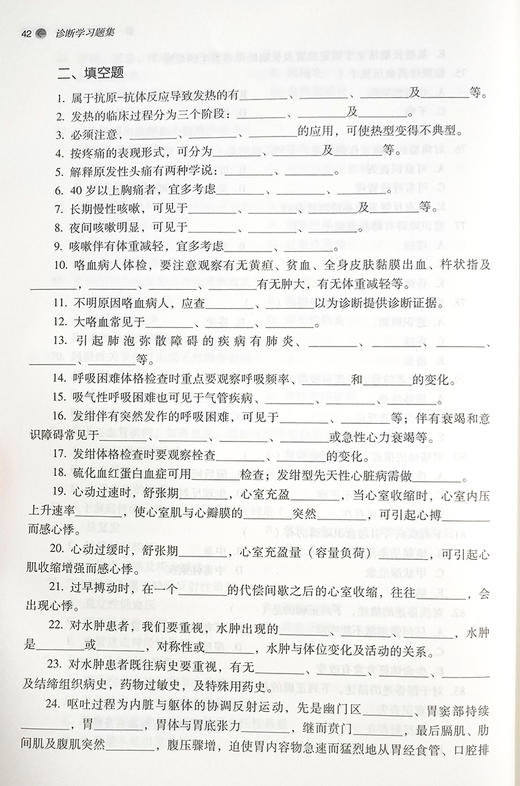 42 诊断学习题集
二、填空题
1. 属于抗原-抗体反应导致发热的有______、______、______及______等。
2. 发热的临床过程分为三个阶段：______、______及______。
3. 必须注意，______、______、______的应用，可使热型变得不典型。
4. 按疼痛的表现形式，可分为______、______及______等。
5. 解释原发性头痛有两种学说：______、______。
6. 40岁以上胸痛者，宜多考虑______、______、______。
7. 长期慢性咳嗽，可见于______、______、______及______等。
8. 夜间咳嗽明显，可见于______、______。
9. 咳嗽伴有体重减轻，宜多考虑______、______。
10. 咯血病人体检，要注意观察有无黄疸、贫血、全身皮肤黏膜出血、杵状指及
______，______、______、______有无肿大，有无体重减轻等。
11. 不明原因咯血病人，应查______、______以为诊断提供诊断证据。
12. 大咯血常见于______、______、______。
13. 引起肺泡弥散障碍的疾病有肺炎、______、______、______、
______、______等。
14. 呼吸困难体格检查时重点要观察呼吸频率、______和______的变化。
15. 吸气性呼吸困难也可见于气管疾病、______、______、______。
16. 发绀伴有突然发作的呼吸困难，可见于______、______等；伴有衰竭和意
识障碍常见于______、______、______、______或急性心力衰竭等。
17. 发绀体格检查时要观察栓查______、______的变化。
18. 硫化血红蛋白血症可用______检查；发绀型先天性心脏病需做______。
19. 心动过速时，舒张期______，心室充盈______，当心室收缩时，心室内压
上升速率______，使心室肌与心瓣膜的______突然______，可引起心搏______
而感心悸。
20. 心动过缓时，舒张期______，心室充盈量（容量负荷）______，可引起心
肌收缩增强而感心悸。
21. 过早搏动时，在一个______的代偿间歇之后的心室收缩，往往______，会
出现心悸。
22. 对水肿患者，我们要重视，水肿出现的______、______、______，水肿
是______或______，对称性或______，水肿与体位变化及活动的关系。
23. 对水肿患者既往病史要重视，有无______、______、______、______
及结缔组织病史，药物过敏史，及特殊用药史。
24. 呕吐过程为内脏与躯体的协调反射运动，先是幽门区______、胃窦部持续
______，胃______，胃体与胃底张力______，继而贲门______，最后膈肌、肋
间肌及腹肌突然______，腹压骤增，迫使胃内容物急速而猛烈地从胃经食管、口腔排